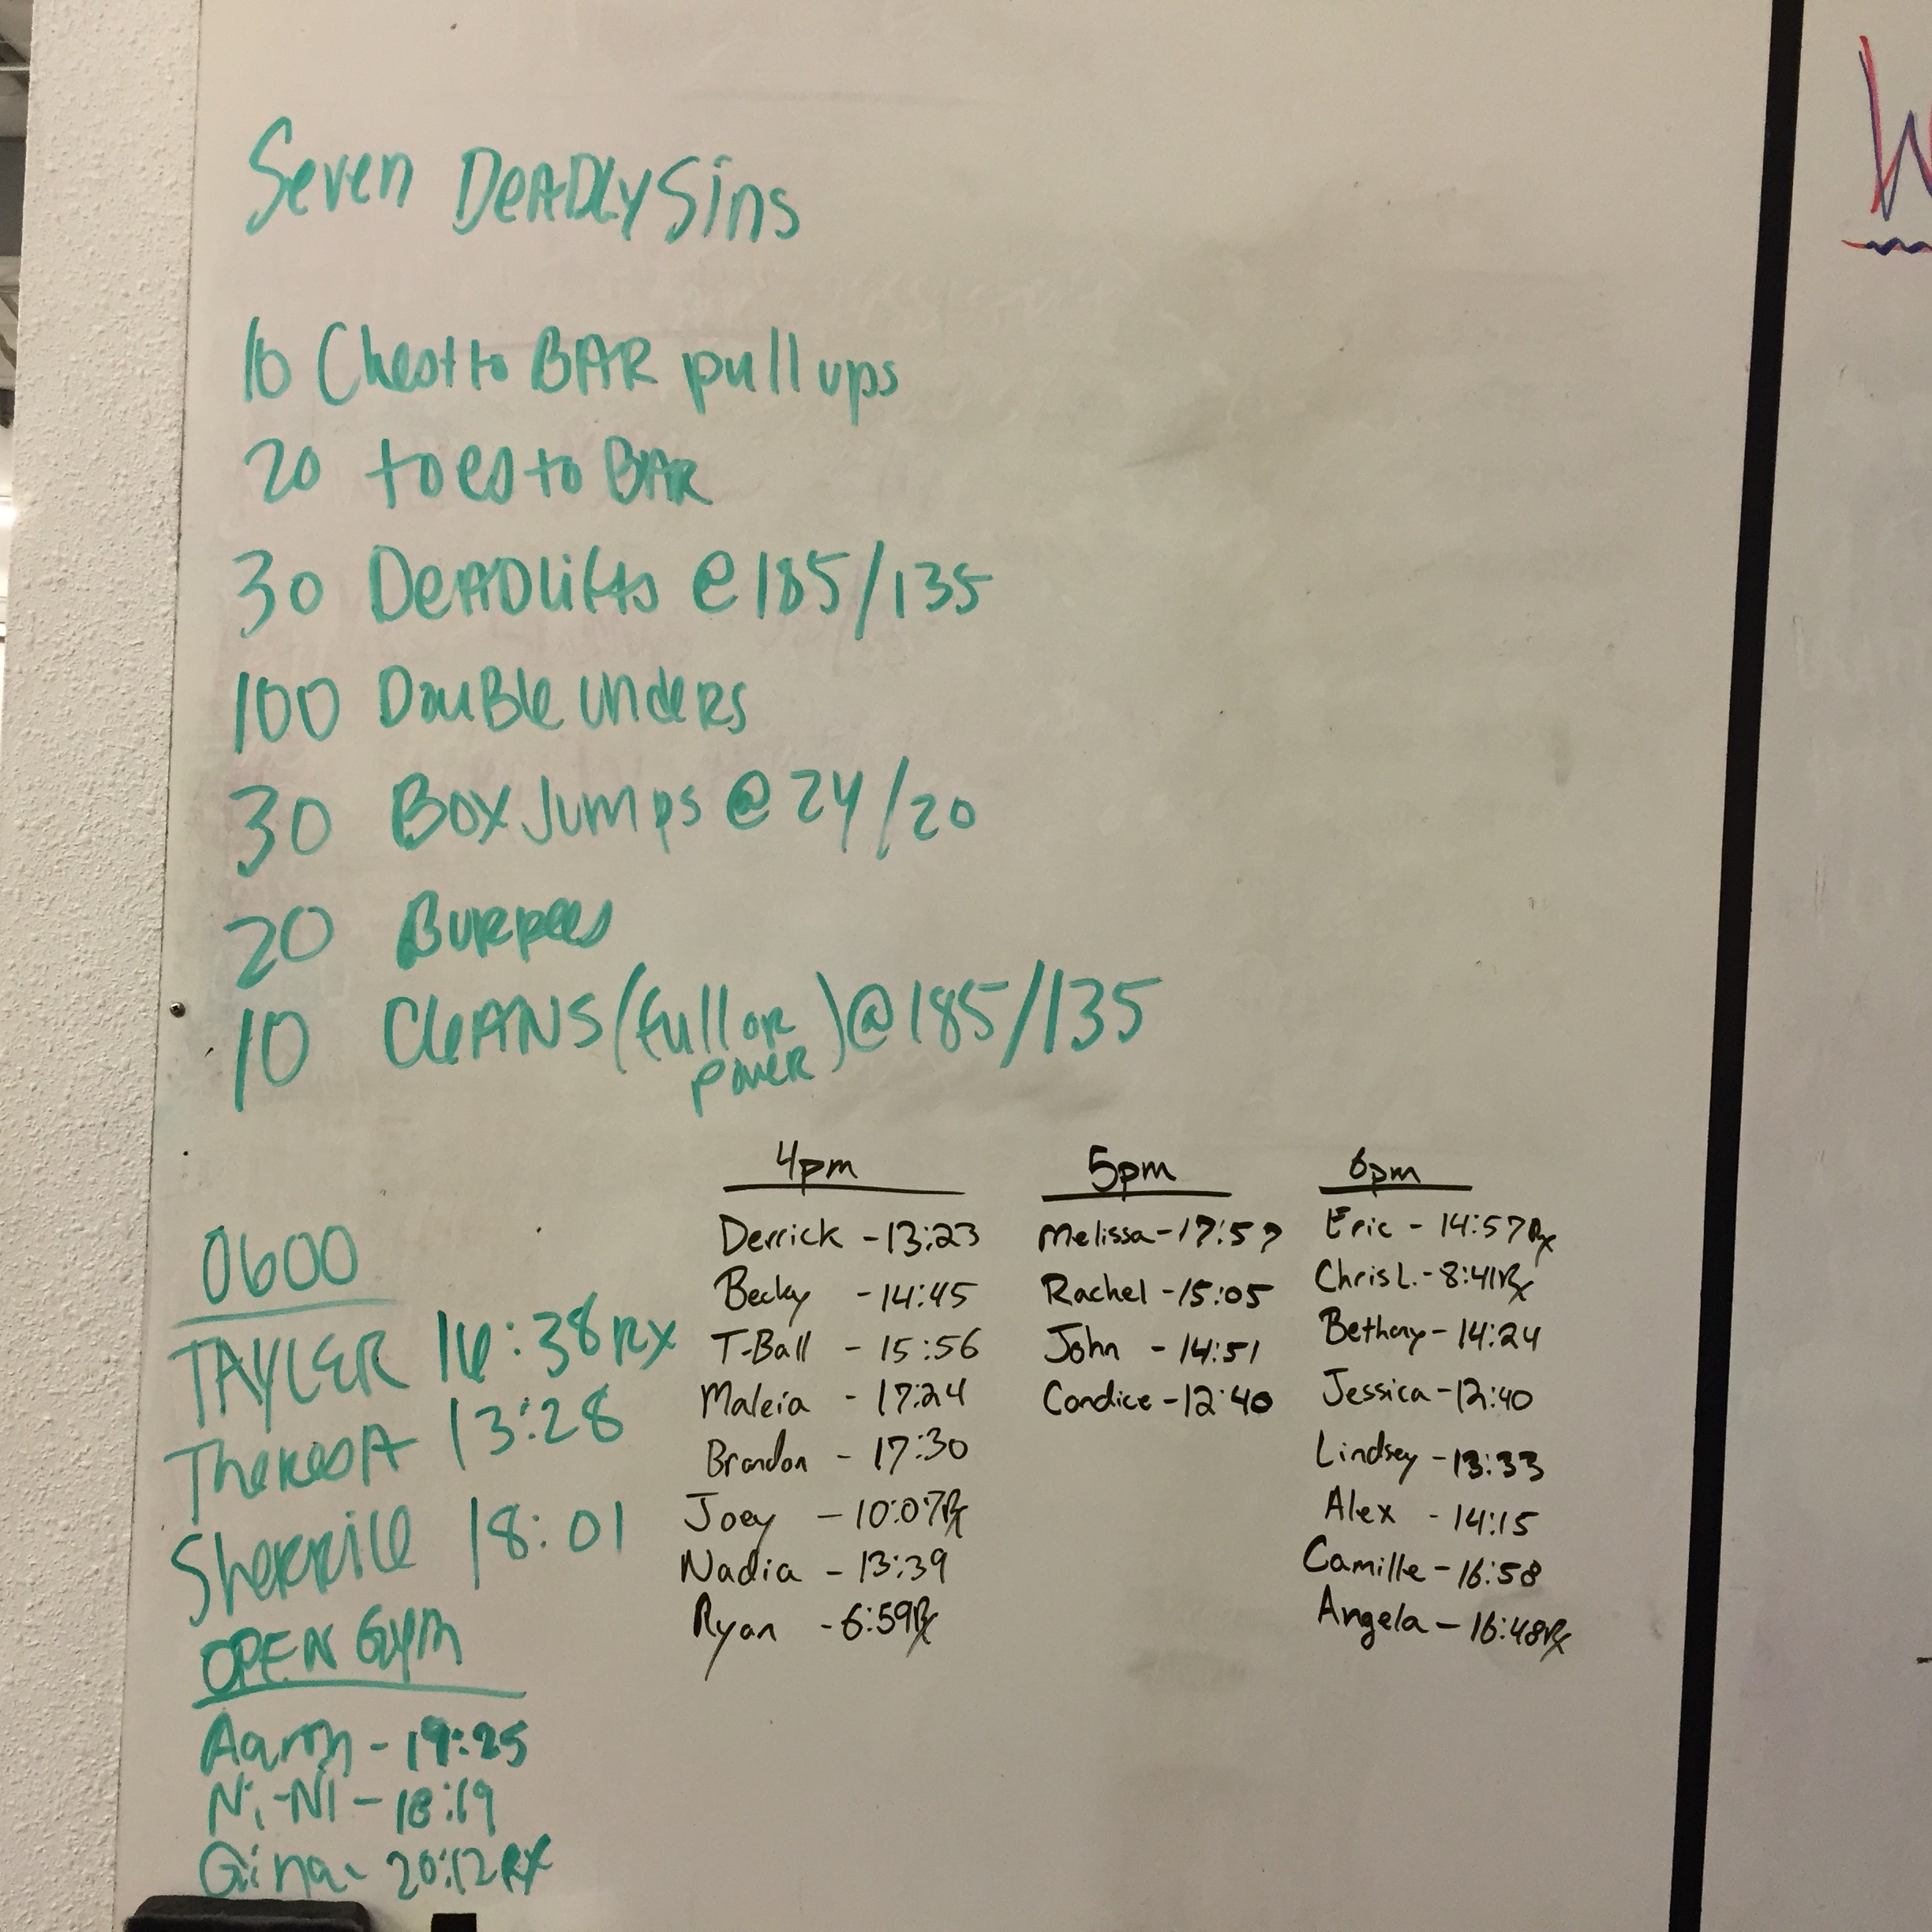 Seven DeADLy Sins
10 Chest to BAR pull ups
20 toes to BAR
30 DeADlifts @ 185/135
100 DouBle unders
30 Box Jumps @ 24/20
20 Burpees
10 CleANS (full or power) @ 185/135
0600
TAYLER 16:38 RX
TheResA 13:28
SheRRill 18:01
OPEN Gym
Aaron - 19:25
Ni-Ni - 18:19
Gina - 20:12 RX
4pm
Derrick - 13:23
Becky - 14:45
T-Ball - 15:56
Maleia - 17:24
Brandon - 17:30
Joey - 10:07 Rx
Nadia - 13:39
Ryan - 6:59 Rx
5pm
Melissa - 17:57
Rachel - 15:05
John - 14:51
Candice - 12:40
6pm
Eric - 14:57 Rx
Chris L. - 8:41 Rx
Bethany - 14:24
Jessica - 12:40
Lindsey - 13:33
Alex - 14:15
Camille - 16:58
Angela - 16:48 Rx